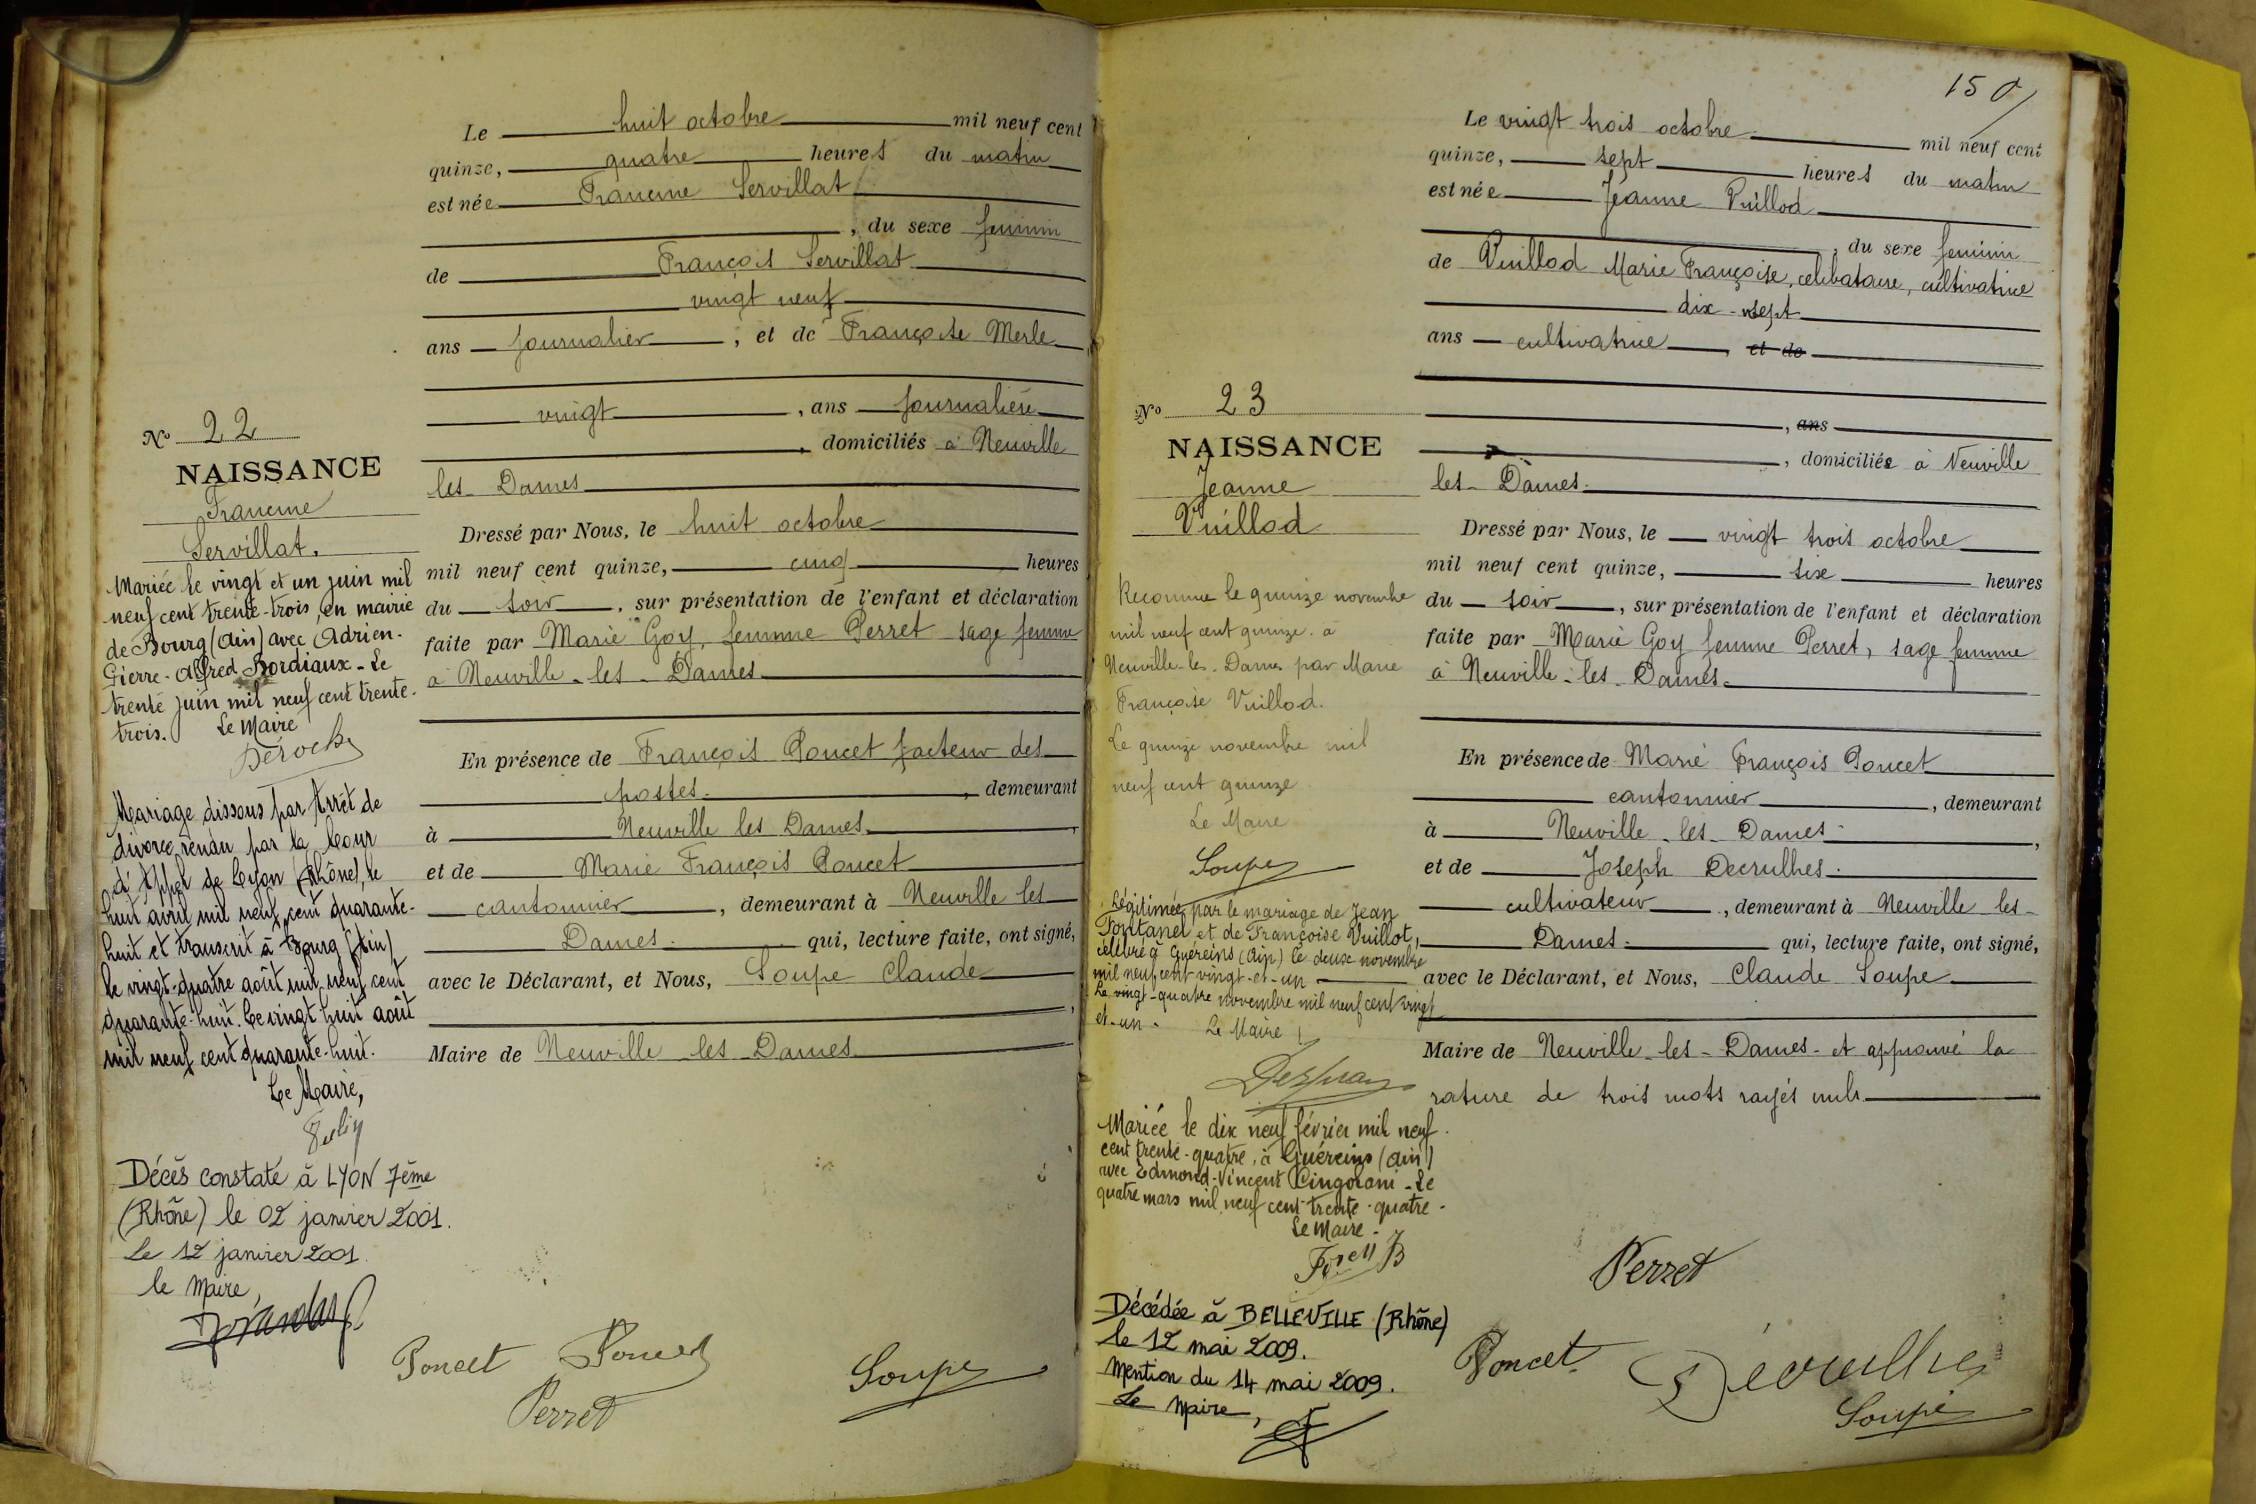 Le huit octobre mil neuf cent
quinze, quatre heures du matin
est née Francine Servillat
, du sexe feminin
de François Servillat
vingt neuf
ans journalier, et de Françoise Merle
vingt, ans journalière
, domiciliés à Neuville
les Dames
Dressé par Nous, le huit octobre
mil neuf cent quinze, cinq heures
du soir, sur présentation de l'enfant et déclaration
faite par Marie Goy, femme Perret sage femme
à Neuville-les-Dames
En présence de François Poncet facteur des
postes, demeurant
à Neuville les Dames
et de Marie François Poncet
cantonnier, demeurant à Neuville les
Dames qui, lecture faite, ont signé,
avec le Déclarant, et Nous, Soupe Claude
Maire de Neuville les Dames
No 22
NAISSANCE
Francine
Servillat.
Mariée le vingt et un juin mil
neuf cent trente-trois, en mairie
de Bourg (Ain) avec Adrien-
Pierre-Alfred Bordiaux - Le
trente juin mil neuf cent trente-
trois. Le Maire
Mariage dissous par Arrêt de
divorce rendu par la Cour
d'Appel de Lyon (Rhône), le
huit avril mil neuf cent quarante-
huit et transcrit à Bourg (Ain)
le vingt-quatre août mil neuf cent
quarante-huit. Le vingt huit août
mil neuf cent quarante-huit.
Le Maire,
Décès constaté à LYON 7ème
(Rhône) le 02 janvier 2001.
Le 12 janvier 2001.
le Maire,
Poncet Poncet
Perret
Soupe
150
Le vingt trois octobre mil neuf cent
quinze, sept heures du matin
est née Jeanne Vuillod
, du sexe feminin
de Vuillod Marie Françoise, celibataire, cultivatrice
dix-sept
ans cultivatrice, et de
, ans
, domiciliée à Neuville
les-Dames.
Dressé par Nous, le vingt trois octobre
mil neuf cent quinze, six heures
du soir, sur présentation de l'enfant et déclaration
faite par Marie Goy femme Perret, sage femme
à Neuville-les-Dames.
En présence de Marie François Poncet
cantonnier, demeurant
à Neuville-les-Dames
et de Joseph Decrulhes.
cultivateur, demeurant à Neuville les-
Dames. qui, lecture faite, ont signé,
avec le Déclarant, et Nous, Claude Soupe
Maire de Neuville-les-Dames-et approuvé la
rature de trois mots rayés nuls
No 23
NAISSANCE
Jeanne
Vuillod
Reconnue le quinze novembre
mil neuf cent quinze. à
Neuville-les-Dames par Marie
Françoise Vuillod.
Le quinze novembre mil
neuf cent quinze
Le Maire
Soupe
Légitimée par le mariage de Jean
Fontanel et de Françoise Vuillot,
célébré à Guéreins (Ain) le deux novembre
mil neuf cent vingt-et-un
Le vingt-quatre novembre mil neuf cent vingt
et-un. Le Maire
Mariée le dix neuf février mil neuf
cent trente-quatre, à Guéreins (Ain)
avec Edmond-Vincent Cingolani - Le
quatre mars mil neuf cent trente-quatre-
Le Maire-
Décédée à BELLEVILLE (Rhône)
le 12 mai 2009.
Mention du 14 mai 2009.
Le Maire,
Perret
Poncet
Soupe